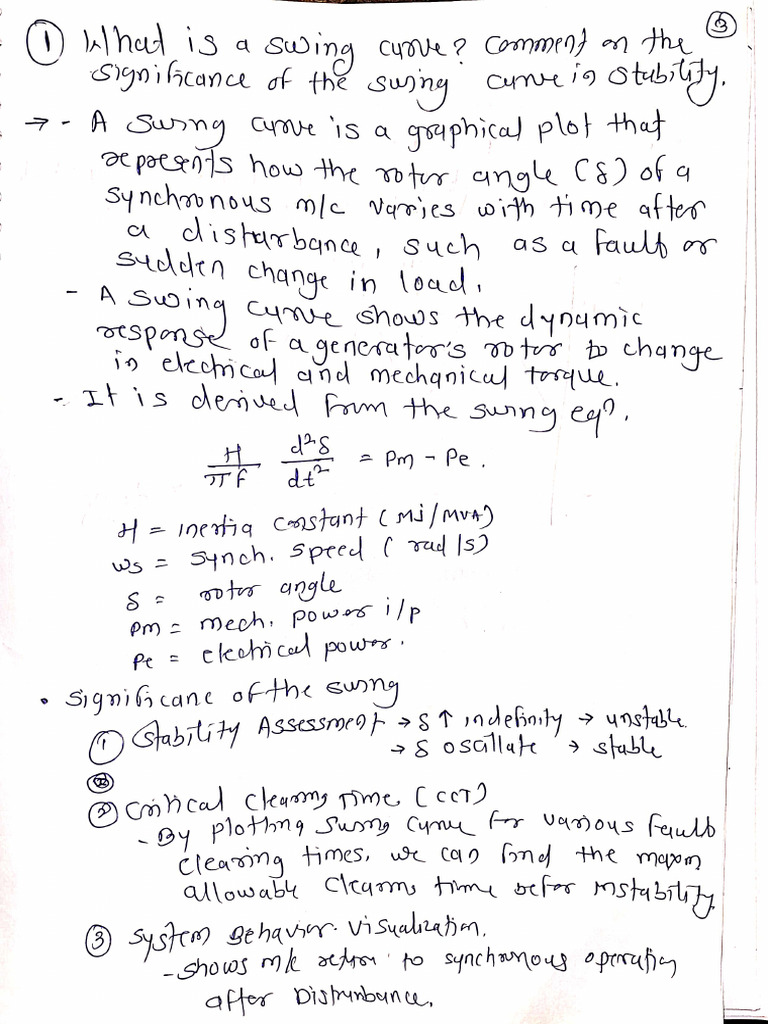 ③
① What is a swing curve? Comment on the
significance of the swing curve in stability.
→ - A swing curve is a graphical plot that
represents how the rotor angle (δ) of a
synchronous m/c varies with time after
a disturbance, such as a fault or
sudden change in load.
- A swing curve shows the dynamic
response of a generator's rotor to change
in electrical and mechanical torque.
- It is derived from the swing eqn.
H/πf d²δ/dt² = Pm - Pe.
H = inertia constant (MJ/MVA)
ws = synch. speed (rad/s)
δ = rotor angle
Pm = mech. power i/p
Pe = electrical power.
• Significane of the swing
① Stability Assessment → δ ↑ indefinity → unstable
→ δ oscillate → stable
② Critical Clearing Time (CCT)
- By plotting swing curve for various fault
clearing times, we can find the maxm
allowable clearing time befor instability.
③ System Behavior Visualization.
- shows m/c return to synchronous operation
after Distrunbance.